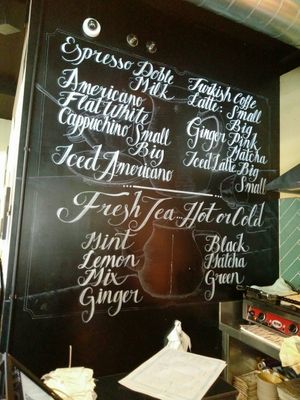 Espresso Doble
Milk
Americano
Flat White
Cappuchino Small
Big
Iced Americano
Turkish Coffe
Latte: Small
Big
Ginger Pink
Matcha
Iced Latte Big
Small
Fresh Tea... Hot or Cold
Mint
Lemon
Mix
Ginger
Black
Matcha
Green